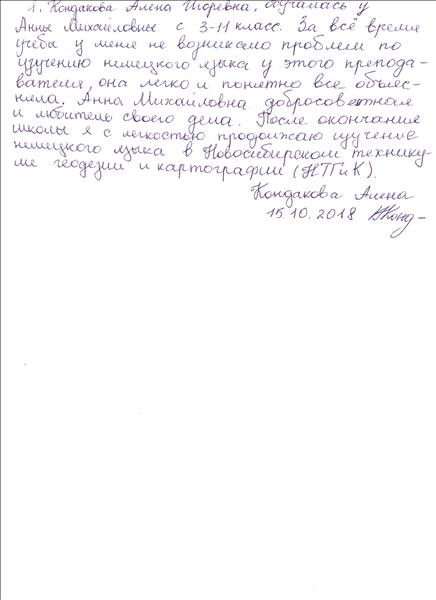 1. Кондакова Алена Игоревна, обучалась у
Анны Михайловны с 3-11 класс. За всё время
учебы у меня не возникало проблем по
изучению немецкого языка у этого препода-
вателя, она легко и понятно все объяс-
нила. Анна Михайловна добросовестная
и любитель своего дела. После окончания
школы я с легкостью продолжаю изучение
немецкого языка в Новосибирском технику-
ме геодезии и картографии (НТГиК).
Кондакова Алена
15.10.2018 Конд-